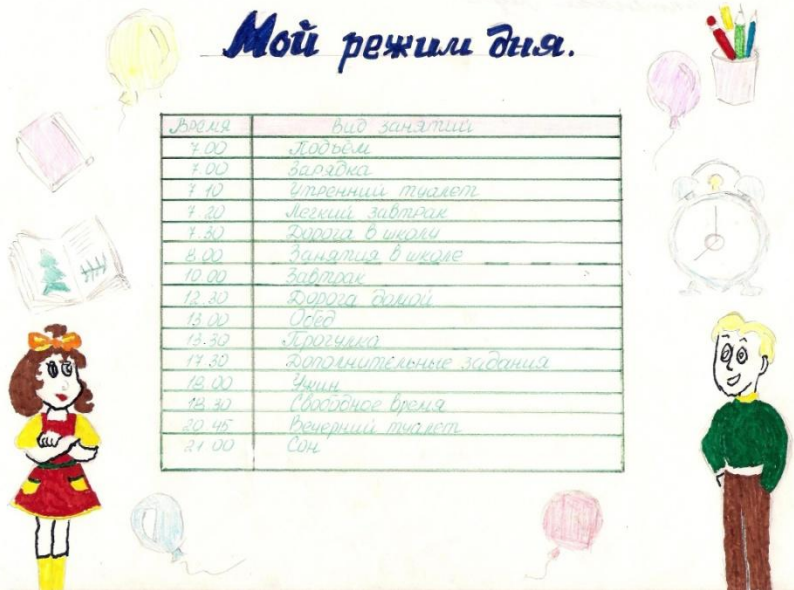 Мой режим дня.
Время Вид занятий
7.00 Подъём
7.00 Зарядка
7.10 Утренний туалет
7.20 Легкий завтрак
7.30 Дорога в школу
8.00 Занятия в школе
10.00 Завтрак
12.30 Дорога домой
13.00 Обед
13.30 Прогулка
17.30 Дополнительные задания
18.00 Ужин
18.30 Свободное время
20.45 Вечерний туалет
21.00 Сон